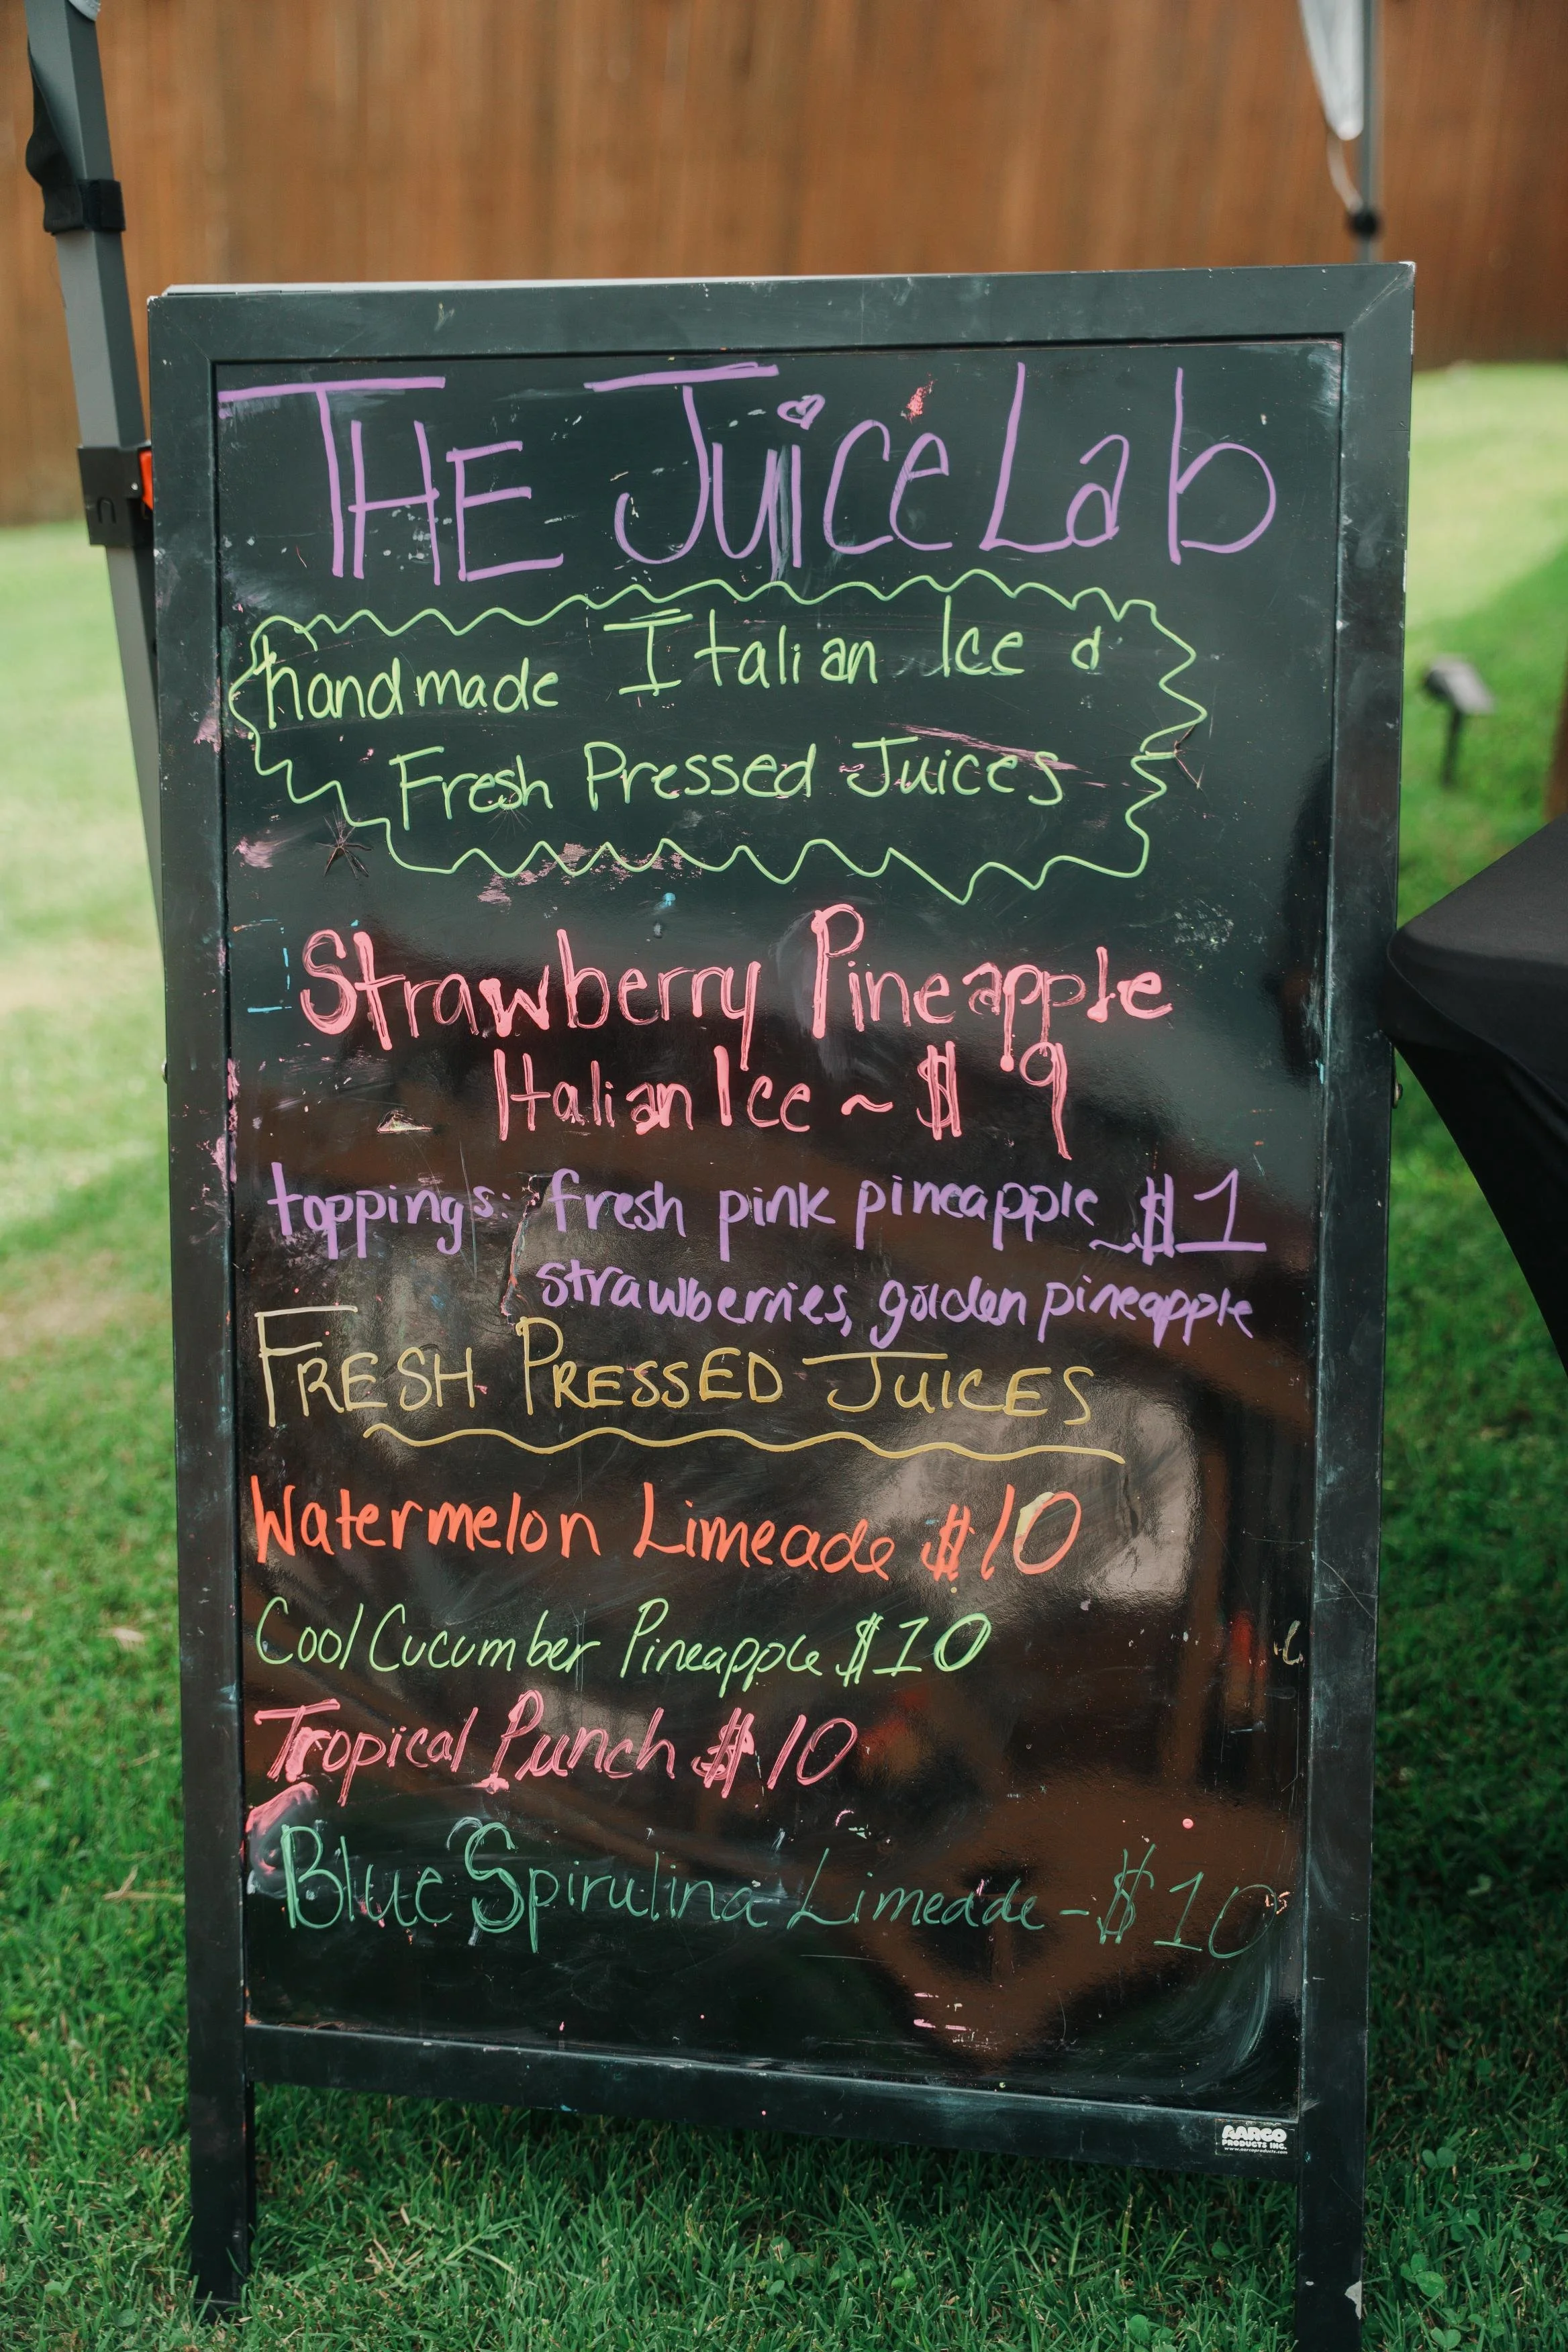 THE JuiceLab
handmade Italian Ice &
Fresh Pressed Juices
Strawberry Pineapple
Italian Ice ~ $9
toppings: fresh pink pineapple ~$1
strawberries, golden pineapple
FRESH PRESSED JUICES
Watermelon Limeade $10
Cool Cucumber Pineapple $10
Tropical Punch $10
Blue Spirulina Limeade - $10
AARCO
PRODUCTS INC.
www.aarcoproducts.com